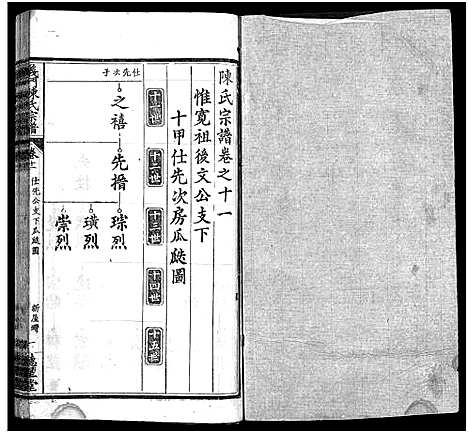 陳氏宗譜卷之十一
惟寬祖後文公支下
十甲仕先次房瓜瓞圖
十一世
十二世
十三世
十四世
十五世
仕先次子
之禧
先搢
琮烈
璜烈
崇烈
義門陳氏宗譜
卷十一
仕先公支下瓜瓞圖
新屋灣
一